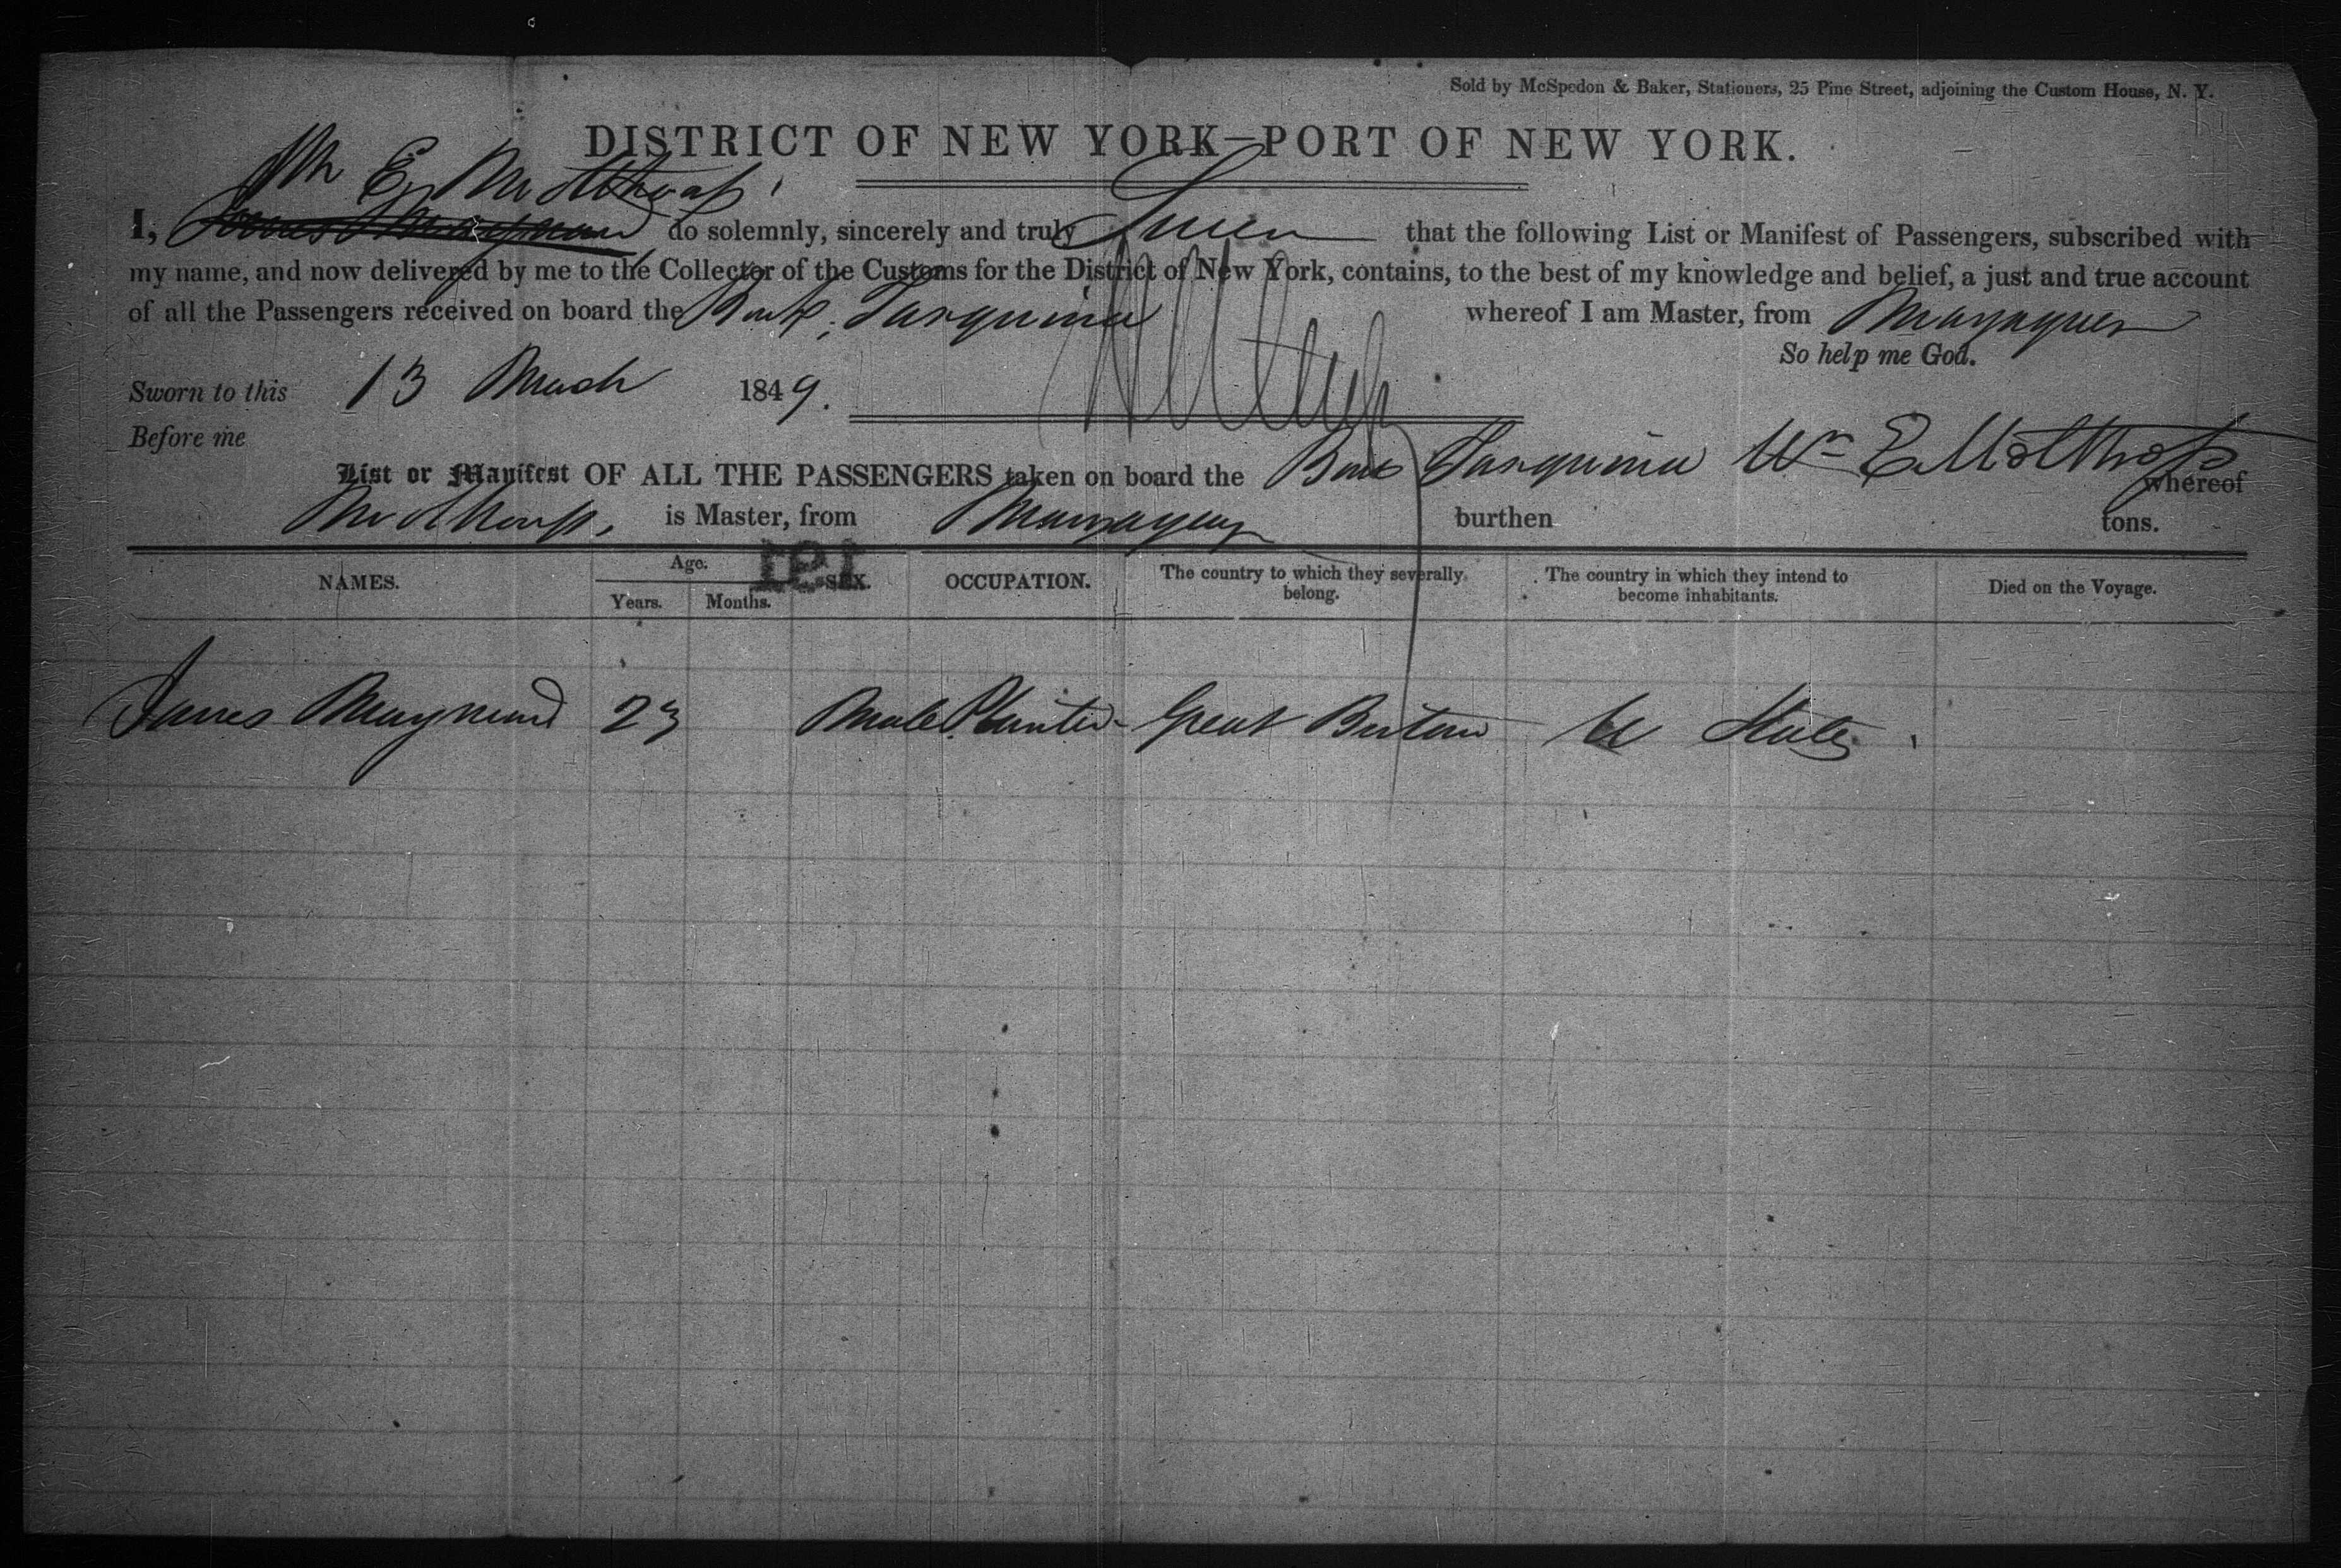 Sold by McSpedon & Baker, Stationers, 25 Pine Street, adjoining the Custom House, N. Y.
DISTRICT OF NEW YORK—PORT OF NEW YORK.
Wm E Molthrop
I, James Maynard do solemnly, sincerely and truly Swear that the following List or Manifest of Passengers, subscribed with
my name, and now delivered by me to the Collector of the Customs for the District of New York, contains, to the best of my knowledge and belief, a just and true account
of all the Passengers received on board the Bark Tarquina whereof I am Master, from Mayaguez
So help me God.
Sworn to this 13 March 1849.
Before me
Wm E Molthrop
List or Manifest OF ALL THE PASSENGERS taken on board the Bark Tarquina whereof
Molthrop, is Master, from Mayaguez burthen tons.
NAMES. Age. Years. Months. SEX. OCCUPATION. The country to which they severally belong. The country in which they intend to become inhabitants. Died on the Voyage.
191
James Maynard 23 Male Planter Great Britain U States